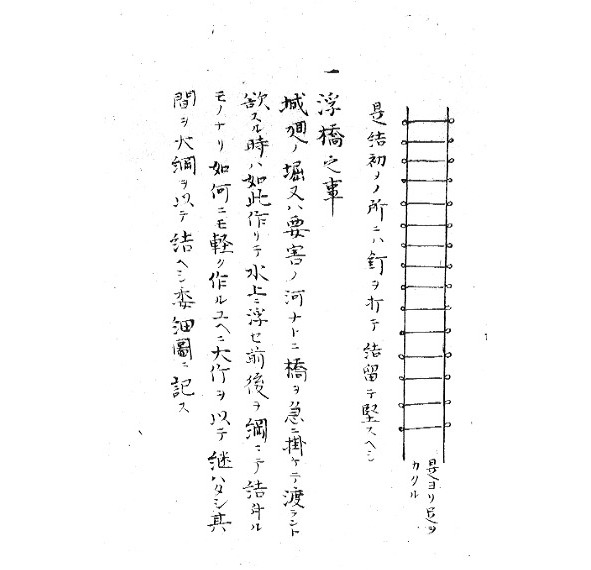 是ヨリ足ヲ
カクル
是結初メノ所ニハ釘ヲ打テ結留テ堅スヘシ
一浮橋之事
城廻ノ堀又ハ要害ノ河ナトニ橋ヲ急ニ掛ケテ渡ラント
欲スル時ハ如此作リテ水上ニ浮セ前後ヲ綱ニテ結計ル
モノナリ如何ニモ軽ク作ルユヘニ大竹ヲ以テ継ハタシ其
間ヲ大綱ヲ以テ結ヘシ委細圖ニ記ス